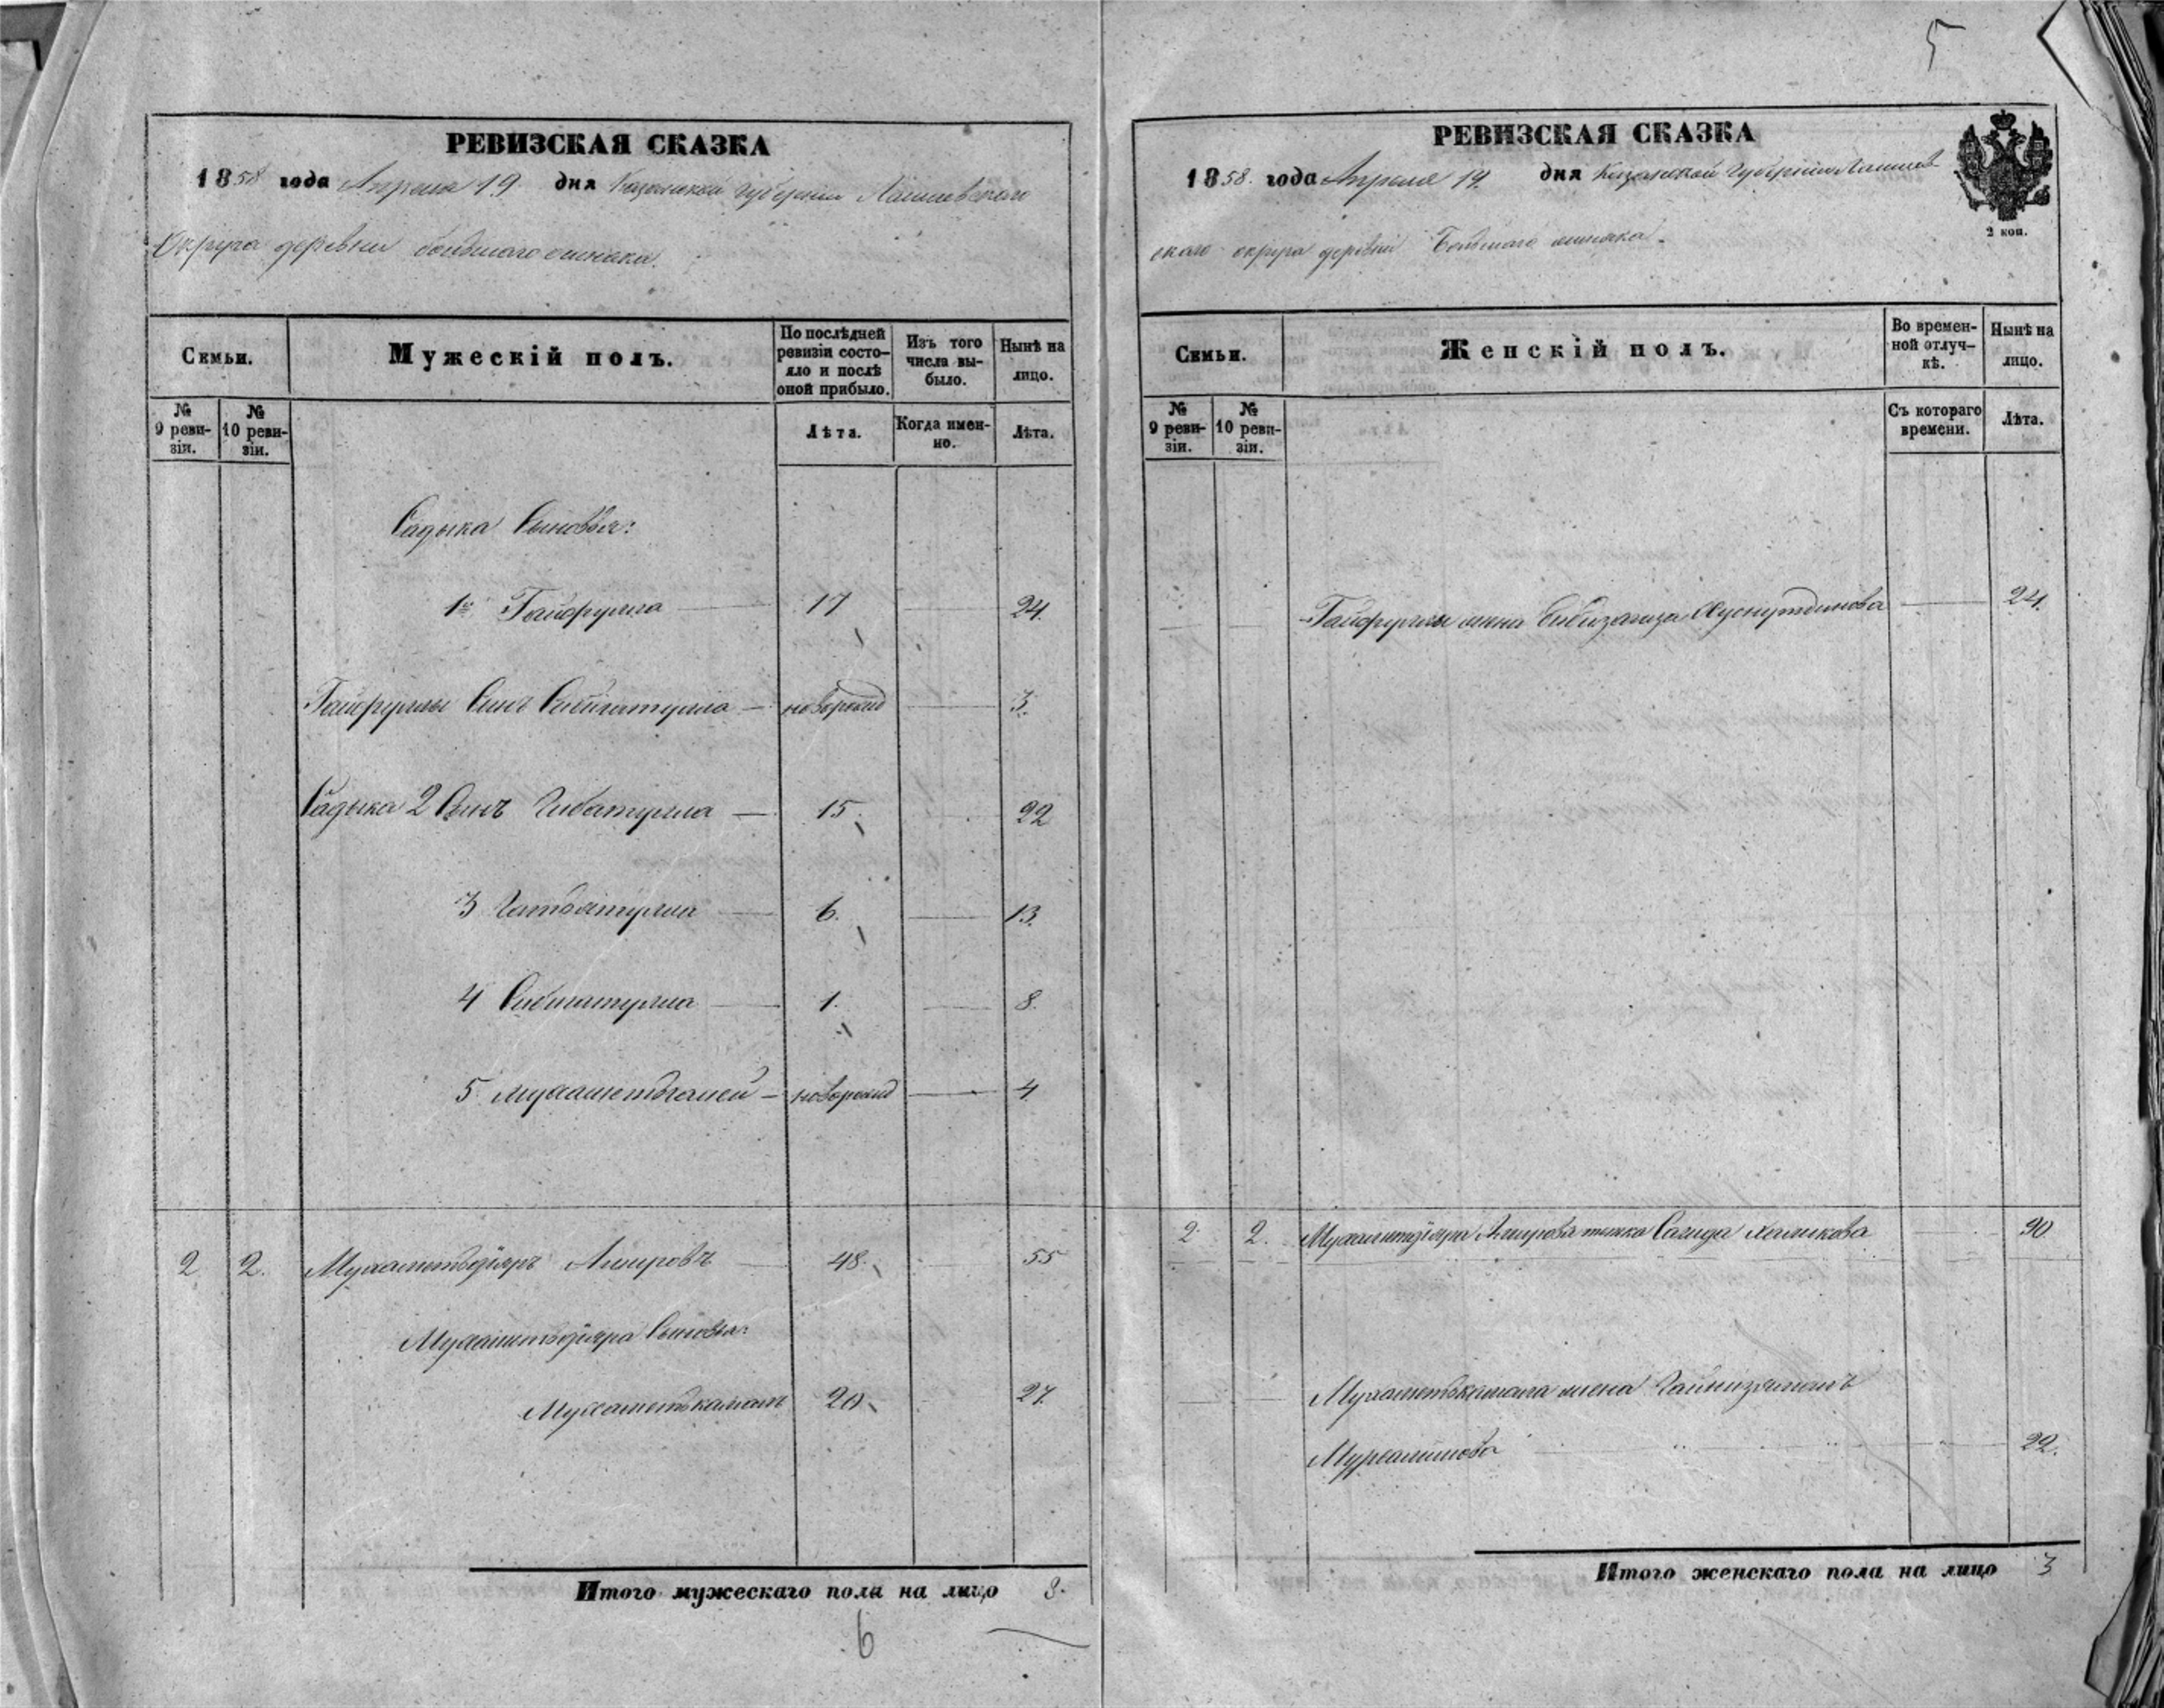 5
РЕВИЗСКАЯ СКАЗКА
1858 года Апреля 19 дня Казанской губернии Лаишевскаго
Округа деревни большаго
Семьи.
Мужескій полъ.
По послѣдней ревизіи состояло и послѣ оной прибыло.
Изъ того числа выбыло.
Нынѣ на лицо.
№ 9 ревизіи.
№ 10 ревизіи.
Лѣта.
Когда именно.
Лѣта.
Садыка Сыновья:
1й Гайфулла 17 24.
Гайфуллы Сынъ новорожд 3.
Садыка 2 Сынъ Гибатулла 15. 22
3 6. 13.
4 1. 8.
5 новорожд 4
2 2. Мухаметьдіяръ Амировъ 48. 55
Мухаметьдіяра Сыновья:
Мухаметькамалъ 20 27.
Итого мужескаго пола на лицо 8.
6
РЕВИЗСКАЯ СКАЗКА
1858. года Апреля 19. дня Казанской Губерніи Лаишев
скаго округа деревни Большаго
2 коп.
Семьи.
Женскій полъ.
Во временной отлучкѣ.
Нынѣ на лицо.
№ 9 ревизіи.
№ 10 ревизіи.
Съ котораго времени.
Лѣта.
Гайфуллы жена Хуснутдинова 24.
2. 2. Мухаметдіяра Амирова жена Сагида Халикова
Мухаметькамала жена
22.
Итого женскаго пола на лицо 3